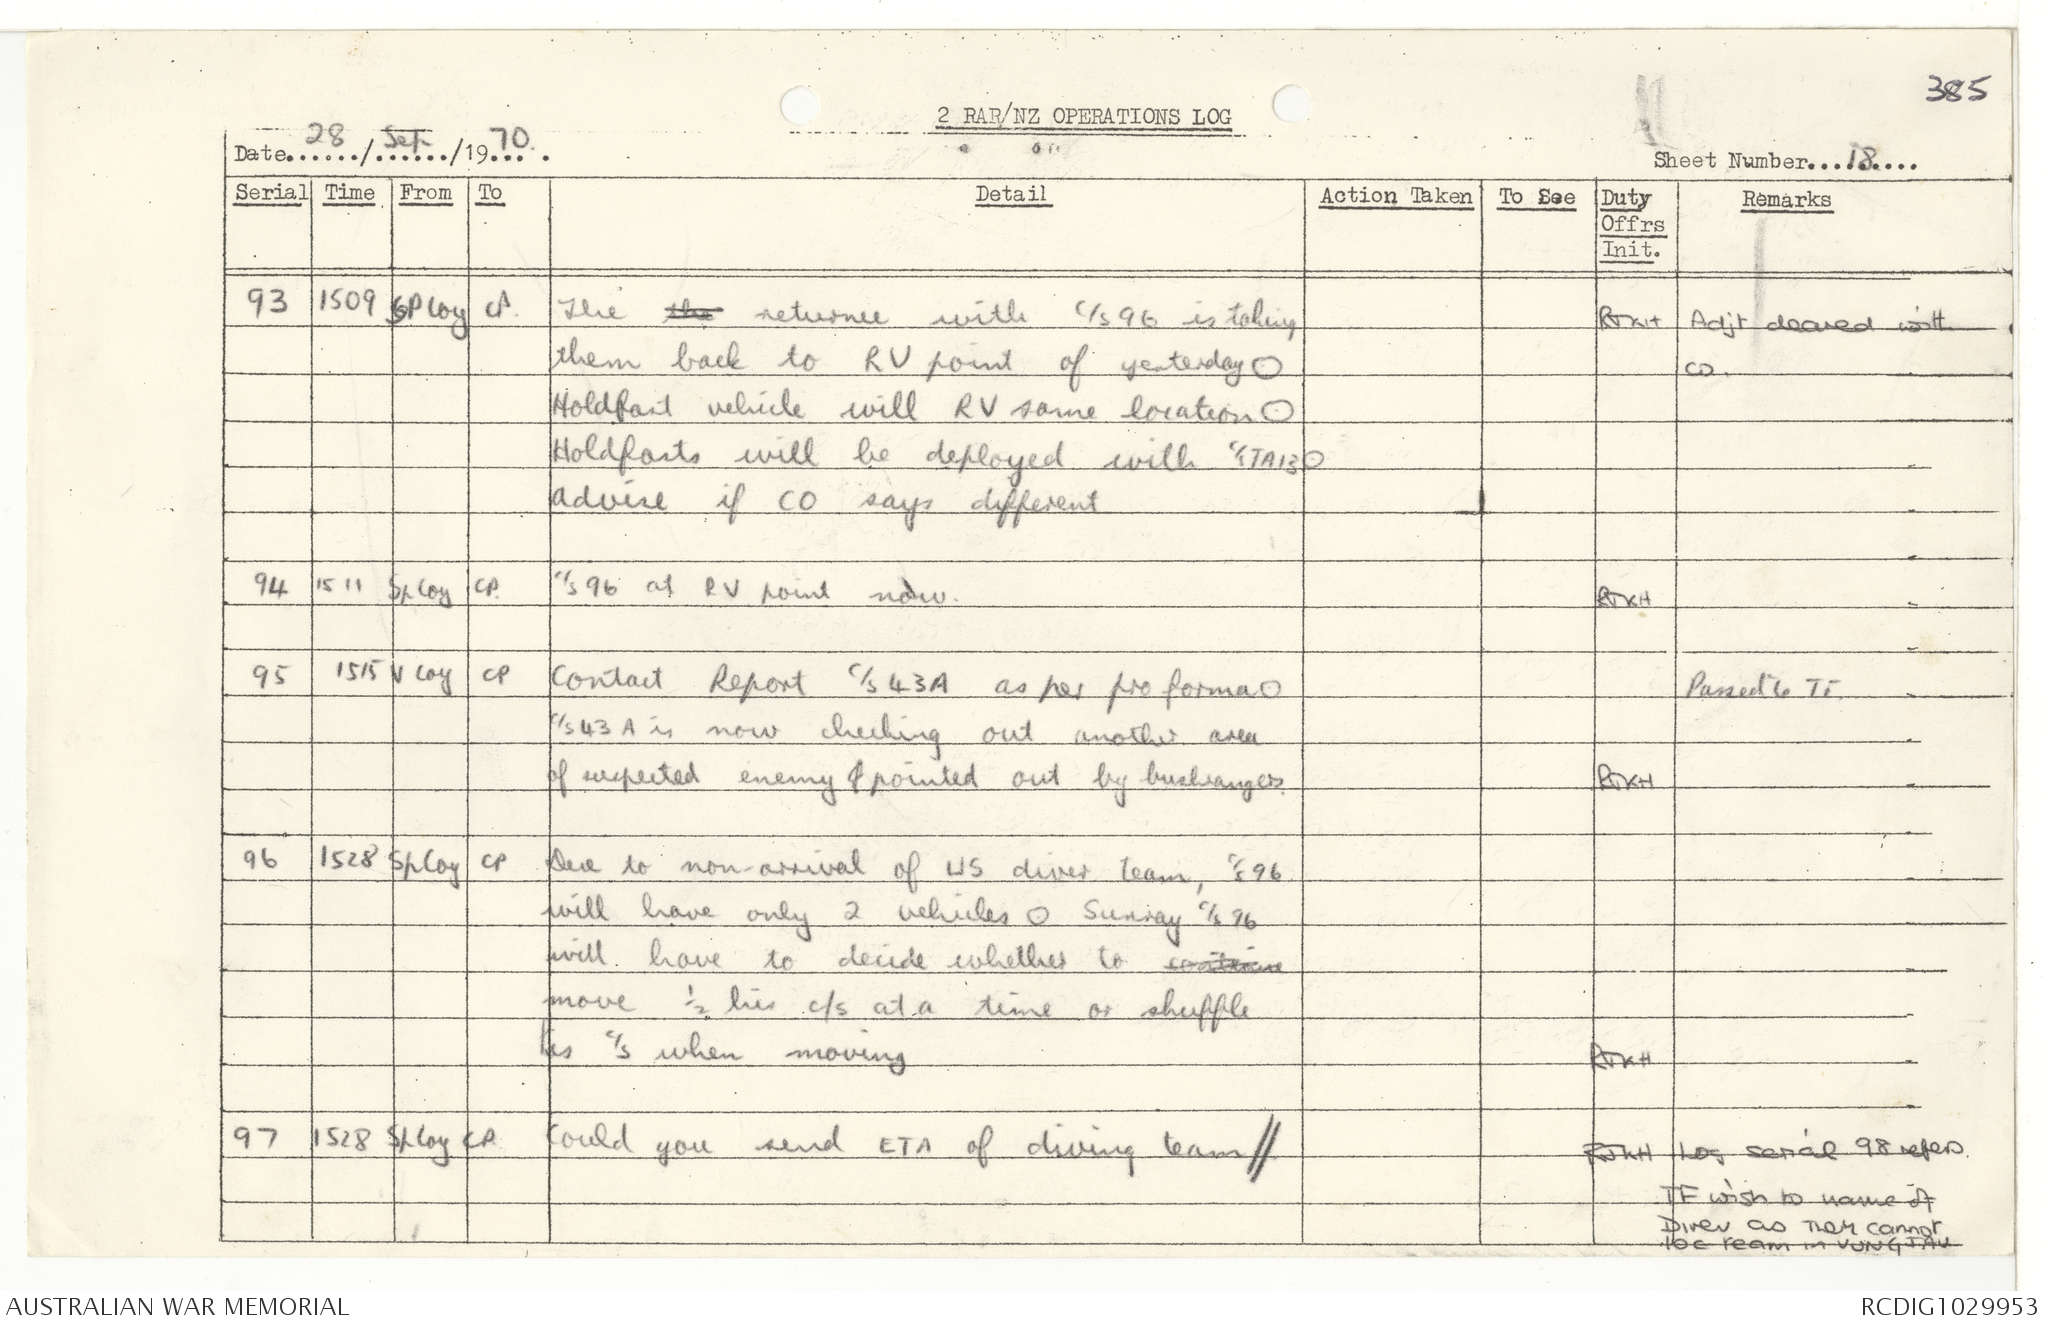 385
2 RAR/NZ OPERATIONS LOG
Date 28/Sep/1970.
Sheet Number 18
Serial Time From To Detail Action Taken To See Duty Offrs Init. Remarks
93 1509 SP Coy CP. The the returnee with C/S 96 is taking RJKH Adjt cleared with
them back to RV point of yesterday O CO.
Holdfast vehicle will RV same location O
Holdfasts will be deployed with C/S TA13 O
advise if CO says different
94 1511 Sp Coy CP. C/S 96 at RV point now. RJKH
95 1515 V Coy CP Contact Report C/S 43A as per pro forma O Passed to TF.
C/S 43A is now checking out another area
of suspected enemy pointed out by bushrangers. RJKH
96 1528 Sp Coy CP Due to non-arrival of US diver team, C/S 96
will have only 2 vehicles O Sunray C/S 96
will have to decide whether to
move ½ his c/s at a time or shuffle
his C/S when moving RJKH
97 1528 Sp Coy CP. Could you send ETA of diving team// RJKH Log serial 98 refers.
TF wish to name of
Diver as they cannot
loc team in VUNG TAU
AUSTRALIAN WAR MEMORIAL
RCDIG1029953